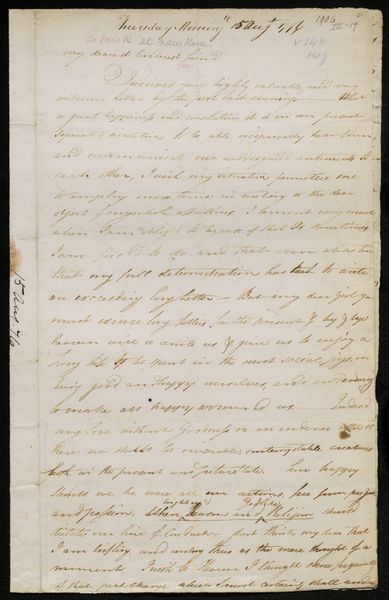 Thursday Morning 15 Augt 1776
1906
III-19
To Mrs K at New Haven
148
149
my dearest tenderest friend
I received your highly valuable and very
welcome letter by the post last evening — What
a great happiness and consolation it is in our present
seperated situation to be able reciprocally hear from,
and communicate our undisguised sentiments to
each other, I wish my situation permitted me
to employ more time in writing to the dear
object of my whole affections, I lament very much
when I am oblig'd to break off short as sometimes
I am forc'd to do and that even when
that my full determination has been to write
an exceeding long letter — But my dear girl you
must excuse long letters, for the present & by & bye
heaven will re unite us & give us to enjoy a
long life to be spent in the most social joys, in
being good and happy ourselves, and endeavoring
to make all happy arround us — Indeed
my love without Goodness or an endeavor after it
here we should be miserable contemptable creatures
both in the present and future state. how happy
should we be were all our actions, free from prejudice
and passion, when Reason and Religion should
dictate our line of Conduct. dont think my dear that
I am trifling, and writing thus as the mere thought of a
moment. I wish to Heaven I thought more frequently
of that great change which most certainly shall
15 Aug 76